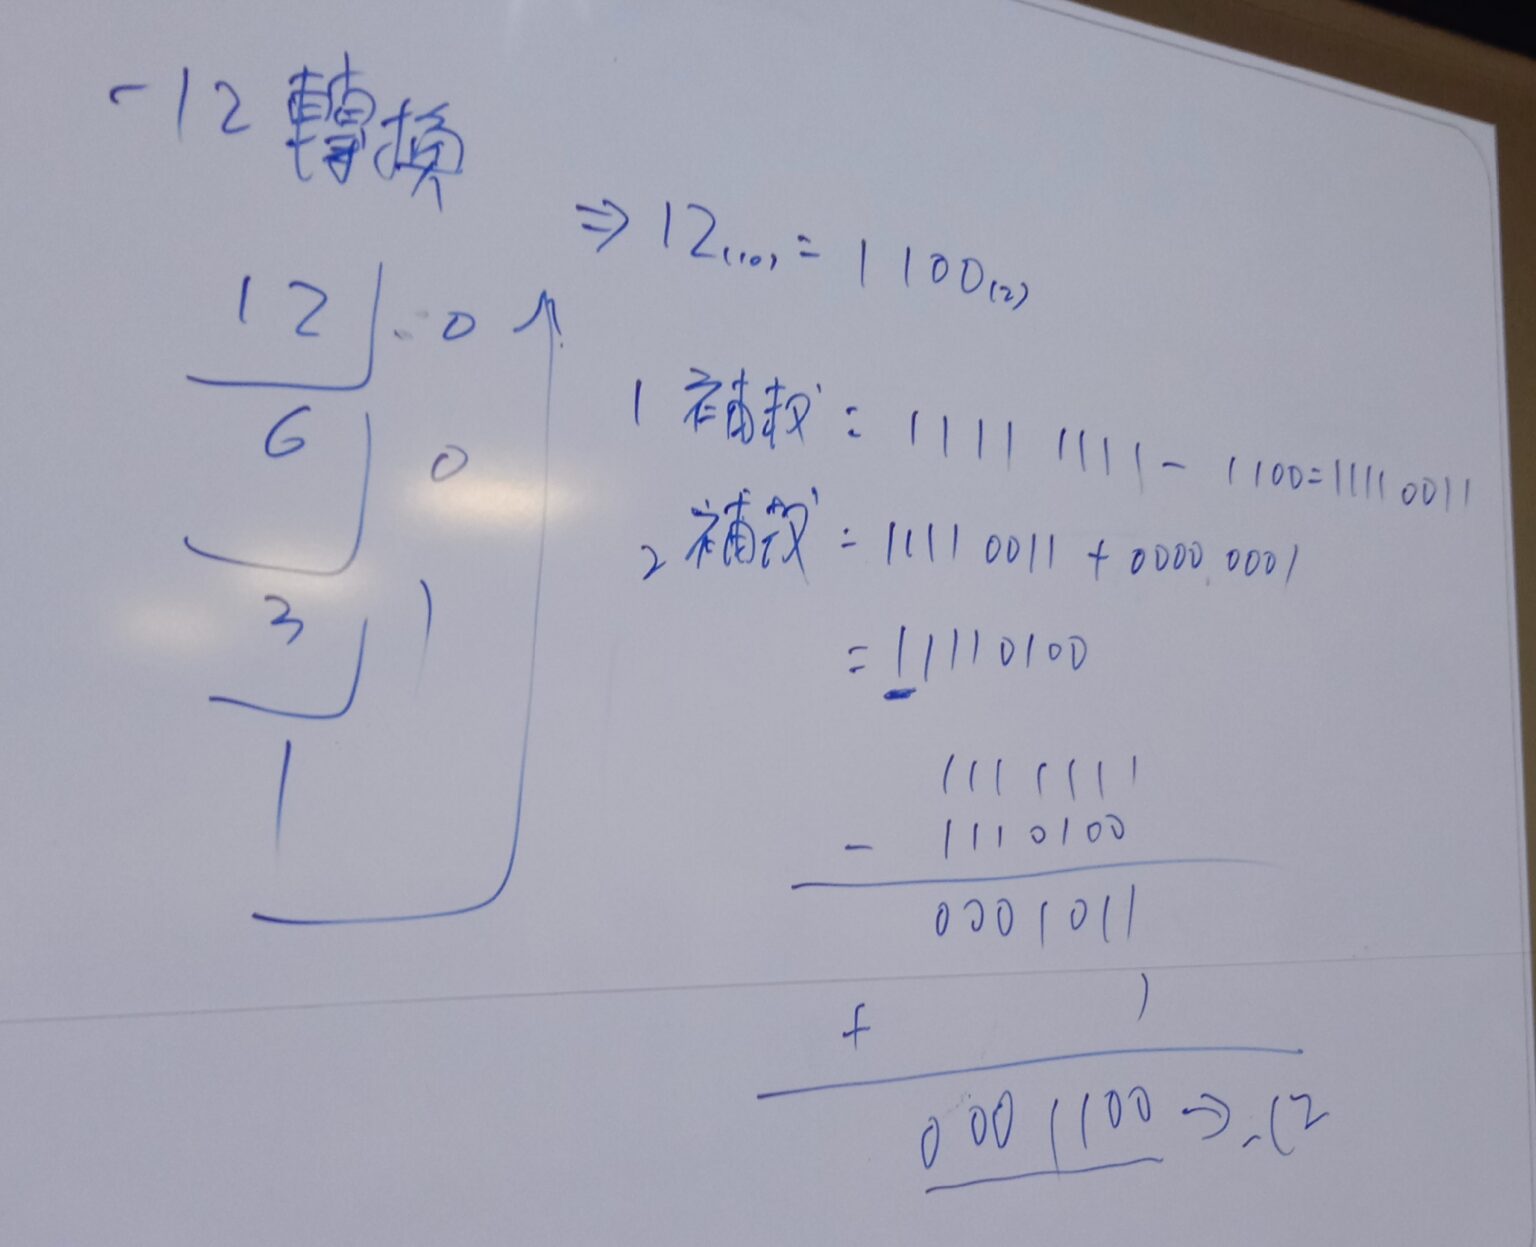 -12 轉換
⇒ 12(10) = 1100(2)
12 0
6 0
3 1
1
1 補数 = 1111 1111 - 1100 = 1111 0011
2 補数 = 1111 0011 + 0000 0001
= 11110100
1111111
- 1110100
0001011
+ 1
0001100 → -12